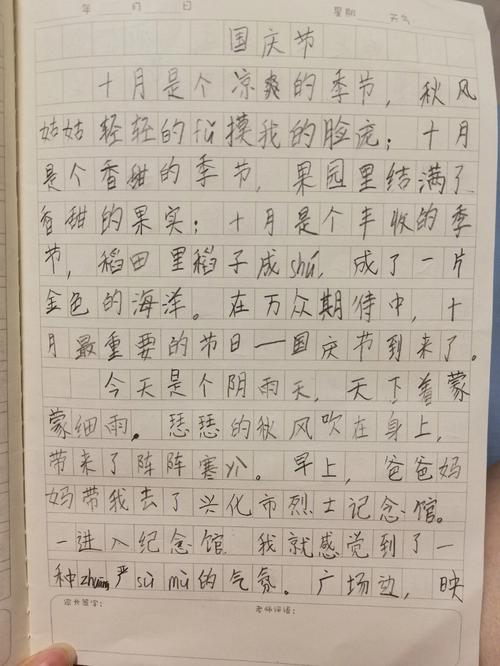 年 月 日 星期 天气
国庆节
十月是个凉爽的季节，秋风
姑姑轻轻的fǔ摸我的脸庞；十月
是个香甜的季节，果园里结满了
香甜的果实；十月是个丰收的季
节，稻田里稻子成shú，成了一片
金色的海洋。在万众期待中，十
月最重要的节日—国庆节到来了。
今天是个阴雨天，天下着蒙
蒙细雨，瑟瑟的秋风吹在身上，
带来了阵阵寒ㄍ。早上，爸爸妈
妈带我去了兴化市烈士记念馆。
一进入纪念馆，我就感觉到了一
种zhuāng严sù mù的气氛。广场边，映
家长签字： 老师评语：